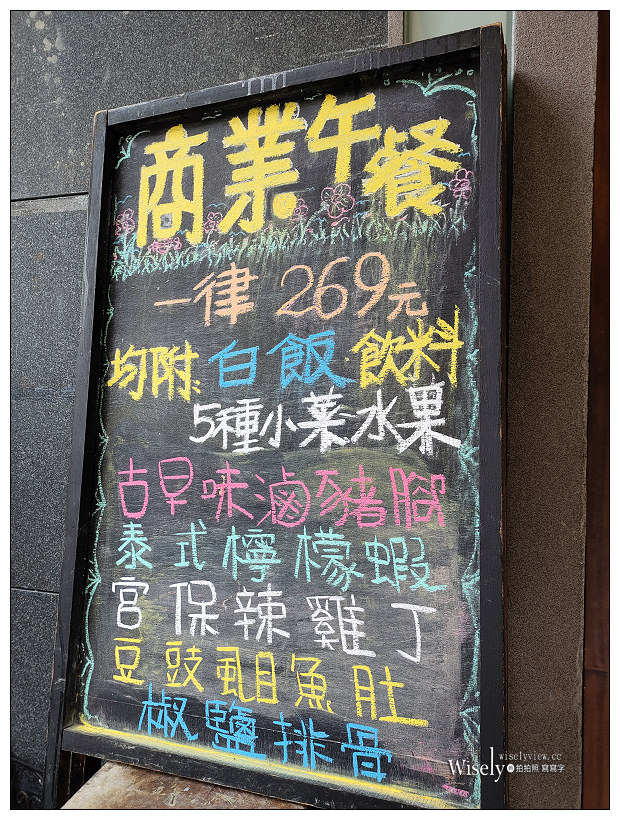 商業午餐
一律 269元
均附: 白飯 飲料
5種小菜 水果
古早味滷豬腳
泰式檸檬蝦
宮保辣雞丁
豆豉虱目魚肚
椒鹽排骨
wiselyview.cc
Wisely 拍拍照 寫寫字